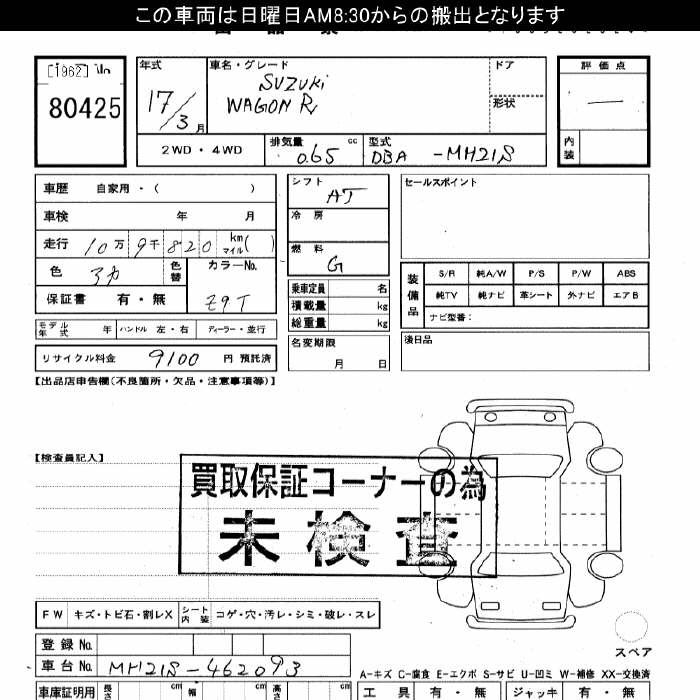 この車両は日曜日AM8:30からの搬出となります
[1962]
80425
年式
17/3月
車名・グレード
SUZUKI
WAGON R
ドア
形状
評価点
内装
2WD・4WD
排気量 cc
0.65
型式
DBA -MH21S
車歴 自家用・( )
車検 年 月
走行 10万9千820 km マイル( )
色 アカ
色替
カラーNo.
Z9T
保証書 有・無
シフト
AT
冷房
燃料
G
乗車定員 名
積載量 kg
総重量 kg
名変期限
月 日
セールスポイント
装備品
S/R 純A/W P/S P/W ABS
純TV 純ナビ 革シート 外ナビ エアB
ナビ型番:
後日品
モデル年式 年 ハンドル 左・右 ディーラー・並行
リサイクル料金 9100 円 預託済
【出品店申告欄(不良箇所・欠品・注意事項等)】
【検査員記入】
買取保証コーナーの為
未検査
FW キズ・トビ石・割レX シート内装 コゲ・穴・汚レ・シミ・破レ・スレ
スペア
登録No.
車台No. MH21S-462093
A-キズ C-腐食 E-エクボ S-サビ U-凹ミ W-補修 XX-交換済
車庫証明用 長さ cm 幅 cm 高さ cm
工具 有・無 ジャッキ 有・無